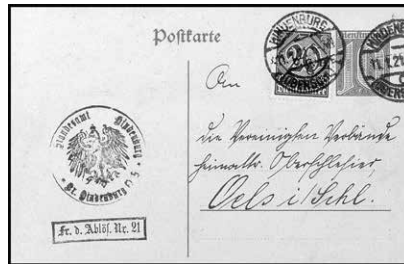 Postkarte
HINDENBURG
OBERSCHL.
20
An
die Vereinigten Verbände
heimattr. Oberschlesier,
Oels i/Schl.
Standesamt Hindenburg
Kr. Hindenburg O/S
Fr. d. Ablös. Nr. 21